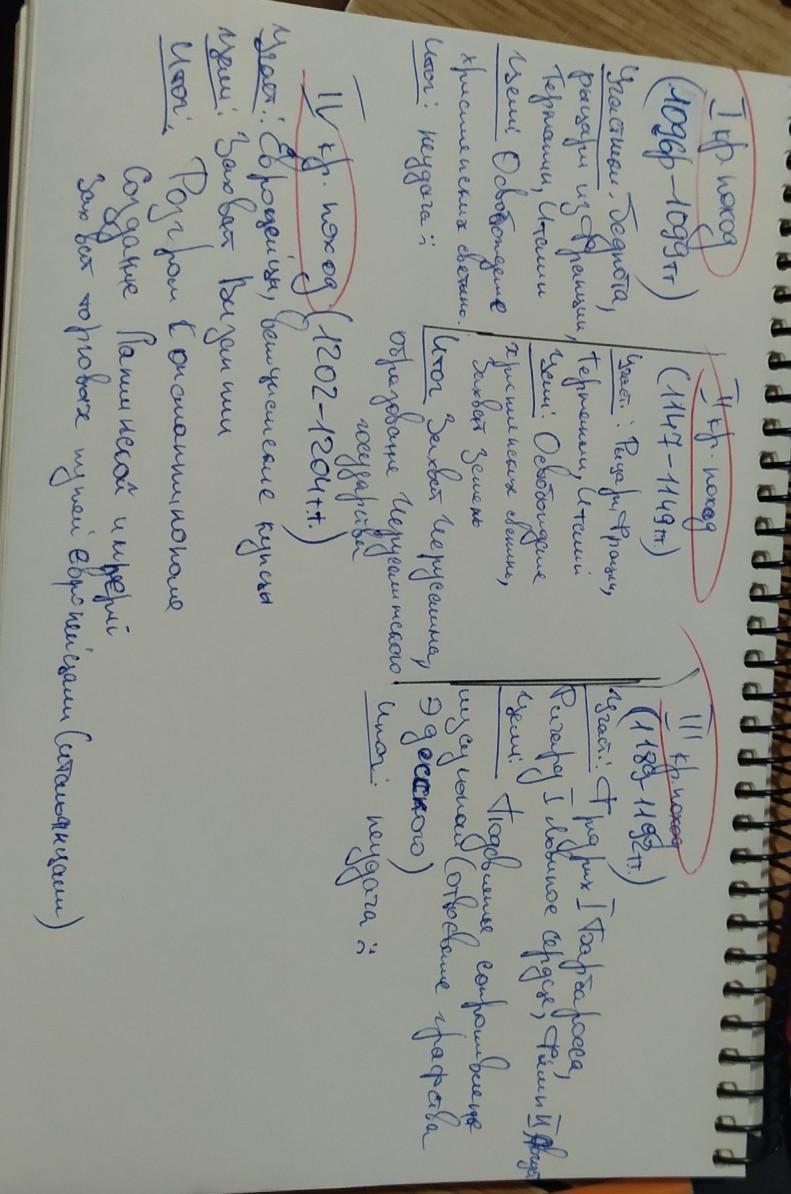 I кр. поход
(1096р-1099гг)
Участники: беднота,
рыцари из Франции,
Германии, Италии
Цели: Освобождение
христианских святынь.
Итог: неудача :(
II кр. поход
(1147-1149гг)
Участ.: Рыцари, Франции,
Германии, Италии
Цели: Освобождение
христианских святынь,
захват земель
Итог Захват Иерусалима,
образование Иерусалимского
государства
III кр. поход
(1189-1192гг.)
Участ.: Фридрих I Барбаросса,
Ричард I Львиное сердце, Филипп II Август
Цели: Подавление сопротивления
мусульман (отвоевание графства
Эдесского)
Итог: неудача :(
IV кр. поход (1202-1204г.г.)
Участ.: Европейцы, венецианские купцы
Цели: Захват Византии
Итог: Разгром Константинополя
Создание Латинской империи
Захват торговых путей европейцами (итальянцами)